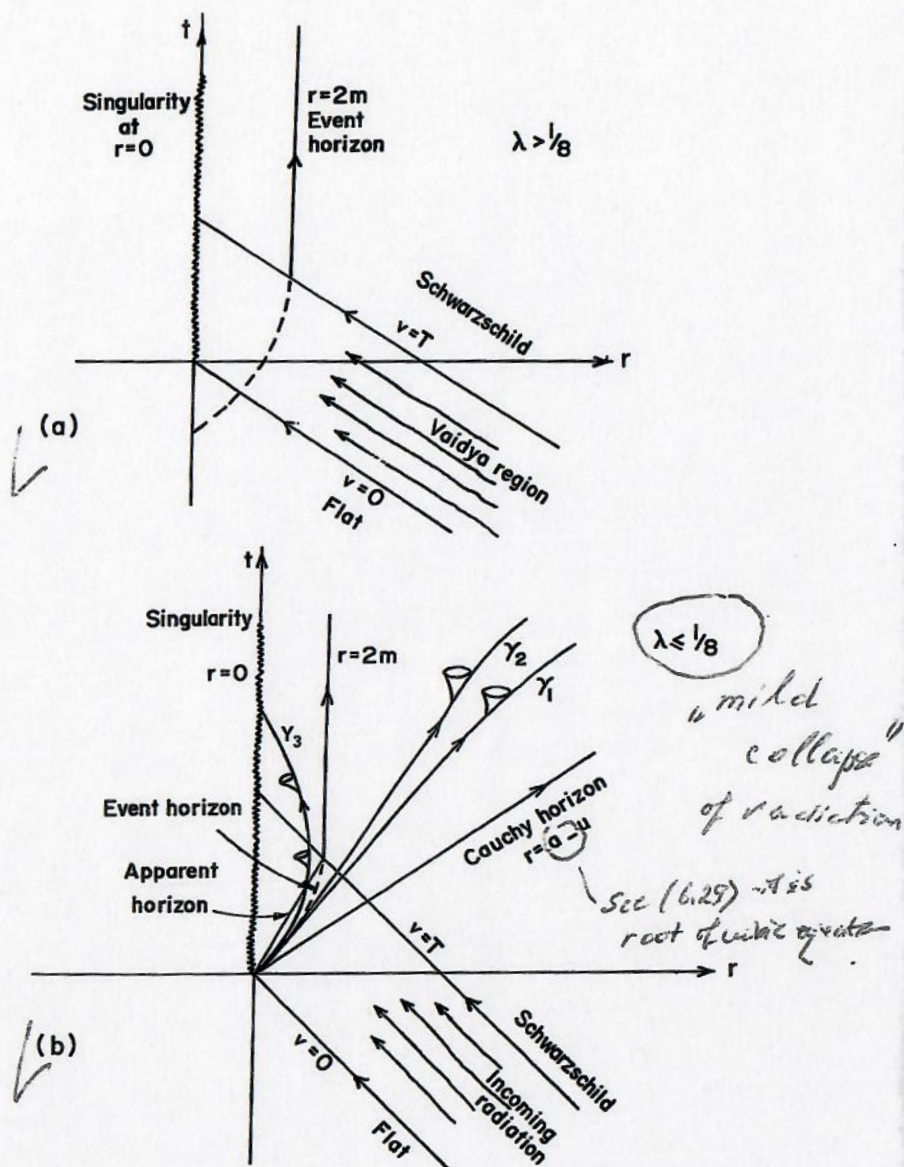 t
Singularity
at
r=0
r=2m
Event
horizon
λ > 1/8
Schwarzschild
v=T
r
Vaidya region
v=0
Flat
(a)
t
Singularity
r=0
r=2m
γ2
γ1
λ ≤ 1/8
γ3
"mild
collapse"
of radiation
Event horizon
Cauchy horizon
r= a_u
Apparent
horizon
see (6.29) it is
root of
v=T
r
(b)
v=0
Schwarzschild
Incoming
radiation
Flat